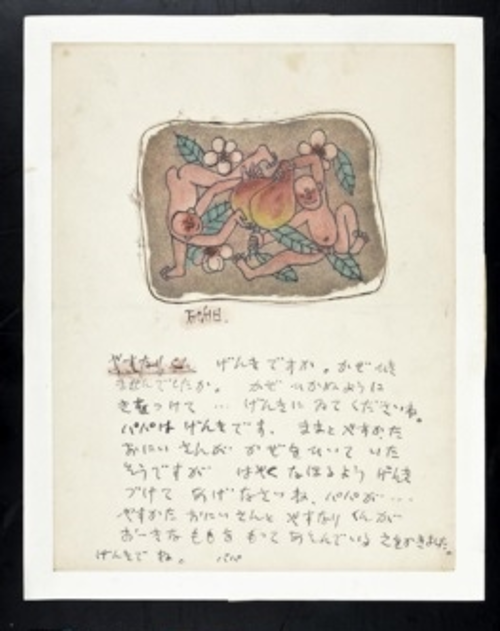 やすなりくん げんきですか。かぜひき
ませんでしたか。 かぜひかぬように
きをつけて … げんきにゐてくださいね。
パパは げんきです。 ままと やすかた
おにいさんが かぜをひいて いた
そうですが はやく なほるよう げんき
づけて あげなさいね、パパが…
やすかた おにいさんと やすなりくんが
おーきなももを もって あそんでいる をかきました。
げんきでね。 パパ